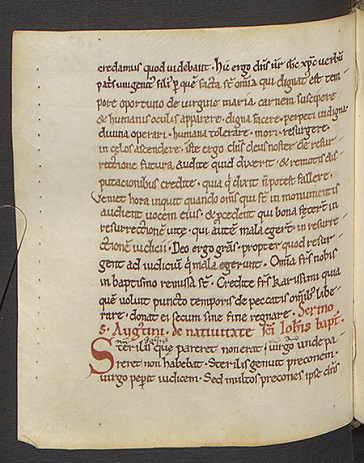 credamus quod uidebant. Hic ergo dn̄s n̄r ih̄c xp̄c uerbū
pat̄s unigenit' fili' p̱ quē facta st̄ omia qui dignat' est tem
pore oportuno de uirgine maria carnem suscipere
& humanis oculis apparere. digna facere. perpeti indigna.
diuina operari. humana tolerare. mori. resurgere.
in celos ascendere. iste ergo dn̄s deus noster de resur
rectione futura audite quid dixerit. & remotis dis
putacionibus credite. quia q̄ dixit n̄ potest fallere.
Veniet hora inquit quando om̄s qui st̄ in monumentis
audient uocem eius & p̱cedent qui bona fecerūt in
resurrectionē uitę. qui autē mala egerūt in resurre
ctionē iudicii. Deo ergo grās. propter quod resur
gent ad iudiciū q̄ mala egerunt. Omia fr̄s nobis
in baptismo remissa st̄. Credite fr̄s karissimi quia
quē uoluit puncto temporis de peccatis om̄ib; libe
rare. donat ei secum sine fine regnare. Sermo
S. Augustini. de natiuitate sc̄i ioh̄is bapt̄.
Sterilis quę pareret non erat. uirgo unde pa
reret non habebat. Sterilis genuit preconem.
uirgo peperit iudicem. Sed multos precones ipse dn̄s